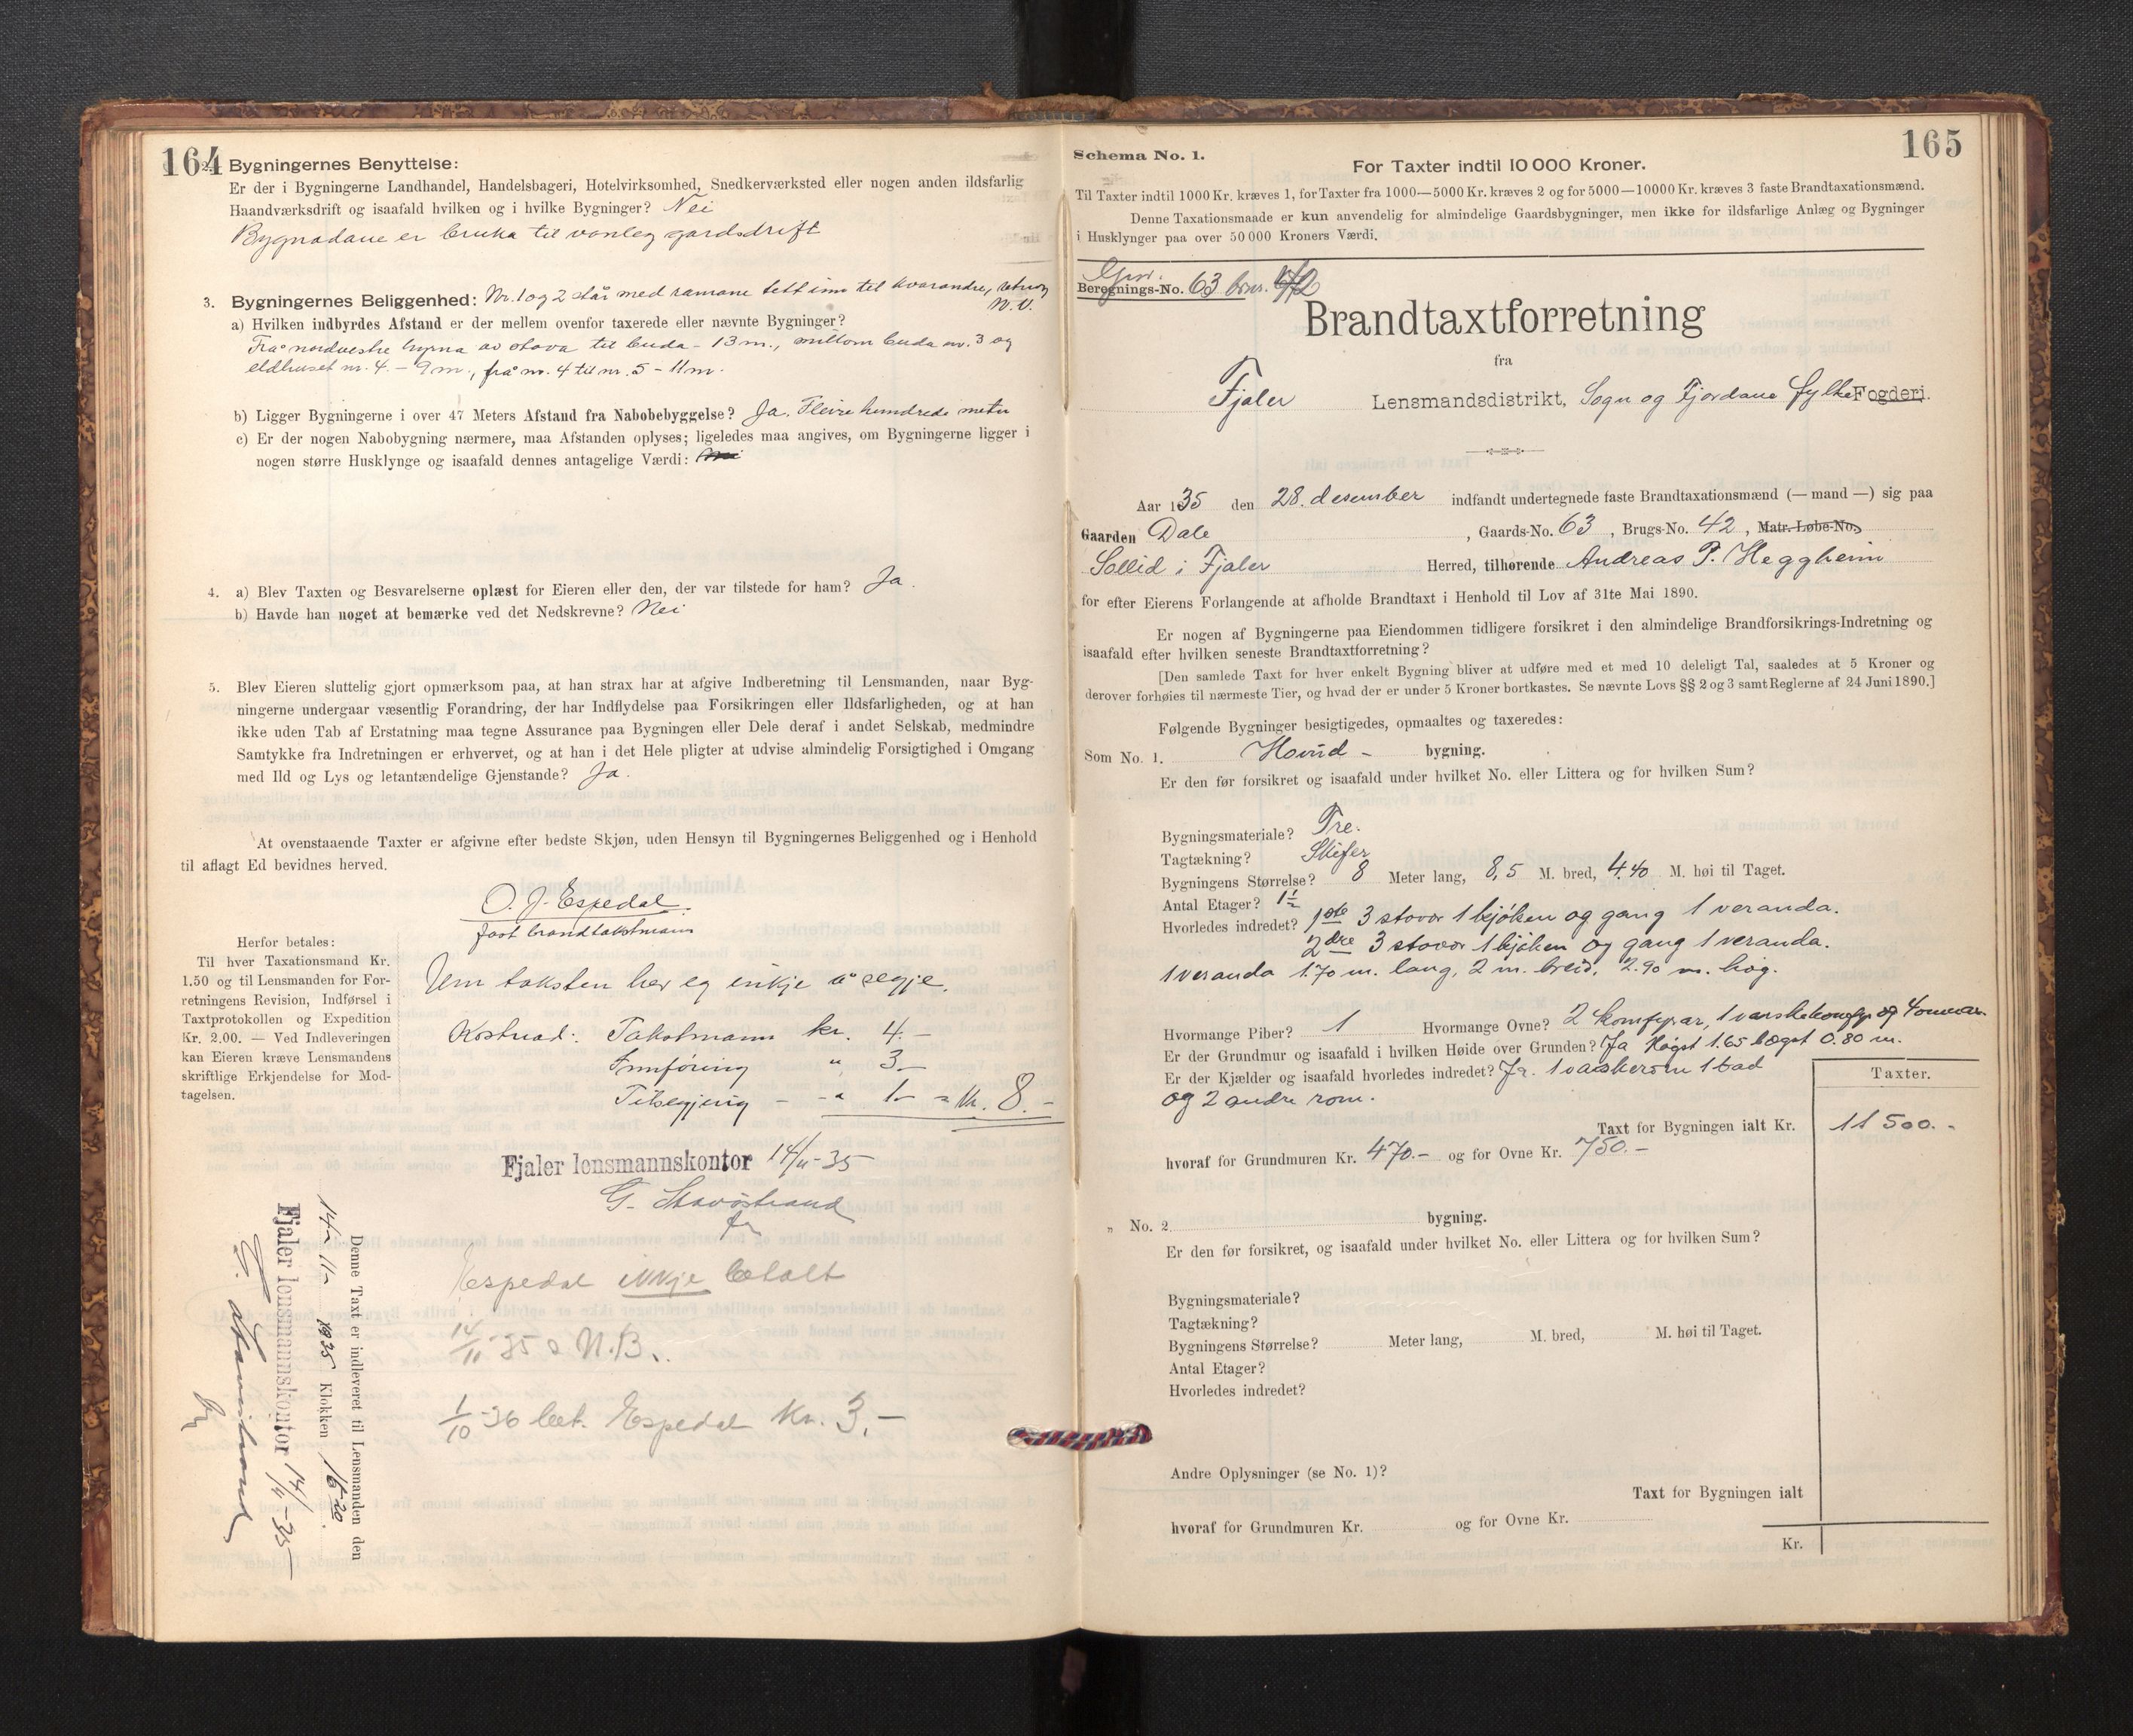 164
2. Bygningernes Benyttelse:
Er der i Bygningerne Landhandel, Handelsbageri, Hotelvirksomhed, Snedkerværksted eller nogen anden ildsfarlig
Haandværksdrift og isaafald hvilken og i hvilke Bygninger? Nei
Bygnadane er bruka til vanleg gardsdrift
3. Bygningernes Beliggenhed: Nr. 1 og 2 står med ramane tett inn til kvarandre, retning
N.V.
a) Hvilken indbyrdes Afstand er der mellem ovenfor taxerede eller nævnte Bygninger?
Frå nordvestre hyrna av stova til buda - 13 m., millom buda nr. 3 og
eldhuset nr. 4. - 9 m., frå nr. 4 til nr. 5 - 11 m.
b) Ligger Bygningerne i over 47 Meters Afstand fra Nabobebyggelse? Ja. Fleire hundrede meter
c) Er der nogen Nabobygning nærmere, maa Afstanden oplyses; ligeledes maa angives, om Bygningerne ligger i
nogen større Husklynge og isaafald dennes antagelige Værdi: Nei
4. a) Blev Taxten og Besvarelserne oplæst for Eieren eller den, der var tilstede for ham? Ja.
b) Havde han noget at bemærke ved det Nedskrevne? Nei
5. Blev Eieren sluttelig gjort opmærksom paa, at han strax har at afgive Indberetning til Lensmanden, naar Byg-
ningerne undergaar væsentlig Forandring, der har Indflydelse paa Forsikringen eller Ildsfarligheden, og at han
ikke uden Tab af Erstatning maa tegne Assurance paa Bygningen eller Dele deraf i andet Selskab, medmindre
Samtykke fra Indretningen er erhvervet, og at han i det Hele pligter at udvise almindelig Forsigtighed i Omgang
med Ild og Lys og letantændelige Gjenstande? Ja.
At ovenstaaende Taxter er afgivne efter bedste Skjøn, uden Hensyn til Bygningernes Beliggenhed og i Henhold
til aflagt Ed bevidnes herved.
O. J. Espedal.
fast brandtakstmann
Herfor betales:
Til hver Taxationsmand Kr.
1.50 og til Lensmanden for For-
retningens Revision, Indførsel i
Taxtprotokollen og Expedition
Kr. 2.00. — Ved Indleveringen
kan Eieren kræve Lensmandens
skriftlige Erkjendelse for Mod-
tagelsen.
Um taksten hev eg inkje å segje.
Kostnad: Takstmann kr. 4.-
Innföring " 3-
Tilsegjing - -" 1- = Kr. 8.-
Fjaler lensmannskontor 14/11-35
G. Stavöstrand
fm
Espedal ikkje betalt
14/11-35 N.B.
1/10-36 bet. Espedal Kr. 3.-
Denne Taxt er indleveret til Lensmanden den
14/11- 1935 Klokken 16.20.
Fjaler lensmannskontor 14/11-35
G. Stavöstrand
fm
165
Schema No. 1.
For Taxter indtil 10 000 Kroner.
Til Taxter indtil 1000 Kr. kræves 1, for Taxter fra 1000—5000 Kr. kræves 2 og for 5000—10000 Kr. kræves 3 faste Brandtaxationsmænd.
Denne Taxationsmaade er kun anvendelig for almindelige Gaardsbygninger, men ikke for ildsfarlige Anlæg og Bygninger
i Husklynger paa over 50 000 Kroners Værdi.
Gnr.
Beregnings-No. 63 bnr. 42
Brandtaxtforretning
fra
Fjaler Lensmandsdistrikt, Sogn og Fjordane fylke Fogderi.
Aar 1935 den 28. desember indfandt undertegnede faste Brandtaxationsmænd (— mand —) sig paa
Gaarden Dale, Gaards-No. 63, Brugs-No. 42, Matr. Løbe-No.
Sollid i Fjaler Herred, tilhørende Andreas P. Heggheim
for efter Eierens Forlangende at afholde Brandtaxt i Henhold til Lov af 31te Mai 1890.
Er nogen af Bygningerne paa Eiendommen tidligere forsikret i den almindelige Brandforsikrings-Indretning og
isaafald efter hvilken seneste Brandtaxtforretning?
[Den samlede Taxt for hver enkelt Bygning bliver at udføre med et med 10 deleligt Tal, saaledes at 5 Kroner og
derover forhøies til nærmeste Tier, og hvad der er under 5 Kroner bortkastes. Se nævnte Lovs §§ 2 og 3 samt Reglerne af 24 Juni 1890.]
Følgende Bygninger besigtigedes, opmaaltes og taxeredes:
Som No. 1. Hovud - bygning.
Er den før forsikret og isaafald under hvilket No. eller Littera og for hvilken Sum?
Bygningsmateriale? Tre.
Tagtækning? Skifer
Bygningens Størrelse? 8 Meter lang, 8,5 M. bred, 4.40 M. høi til Taget.
Antal Etager? 1½
Hvorledes indredet? 1ste 3 stovor 1 kjöken og gang 1 veranda.
2dre 3 stovor 1 kjöken og gang 1 veranda.
1 veranda 1.70 m. lang, 2 m. breid, 2.90 m. høg.
Hvormange Piber? 1 Hvormange Ovne? 2 komfyrar, 1 vaskekomfyr og 4 omnar.
Er der Grundmur og isaafald i hvilken Høide over Grunden? Ja Högst 1.65 lægst 0.80 m.
Er der Kjælder og isaafald hvorledes indredet? Ja. 1 vaskerom 1 bad
og 2 andre rom.
Taxter.
Taxt for Bygningen ialt Kr. 11 500.-
hvoraf for Grundmuren Kr. 470.- og for Ovne Kr. 750.-
" No. 2. bygning.
Er den før forsikret, og isaafald under hvilket No. eller Littera og for hvilken Sum?
Bygningsmateriale?
Tagtækning?
Bygningens Størrelse? Meter lang, M. bred, M. høi til Taget.
Antal Etager?
Hvorledes indredet?
Andre Oplysninger (se No. 1)?
Taxt for Bygningen ialt
hvoraf for Grundmuren Kr. og for Ovne Kr.
Kr.